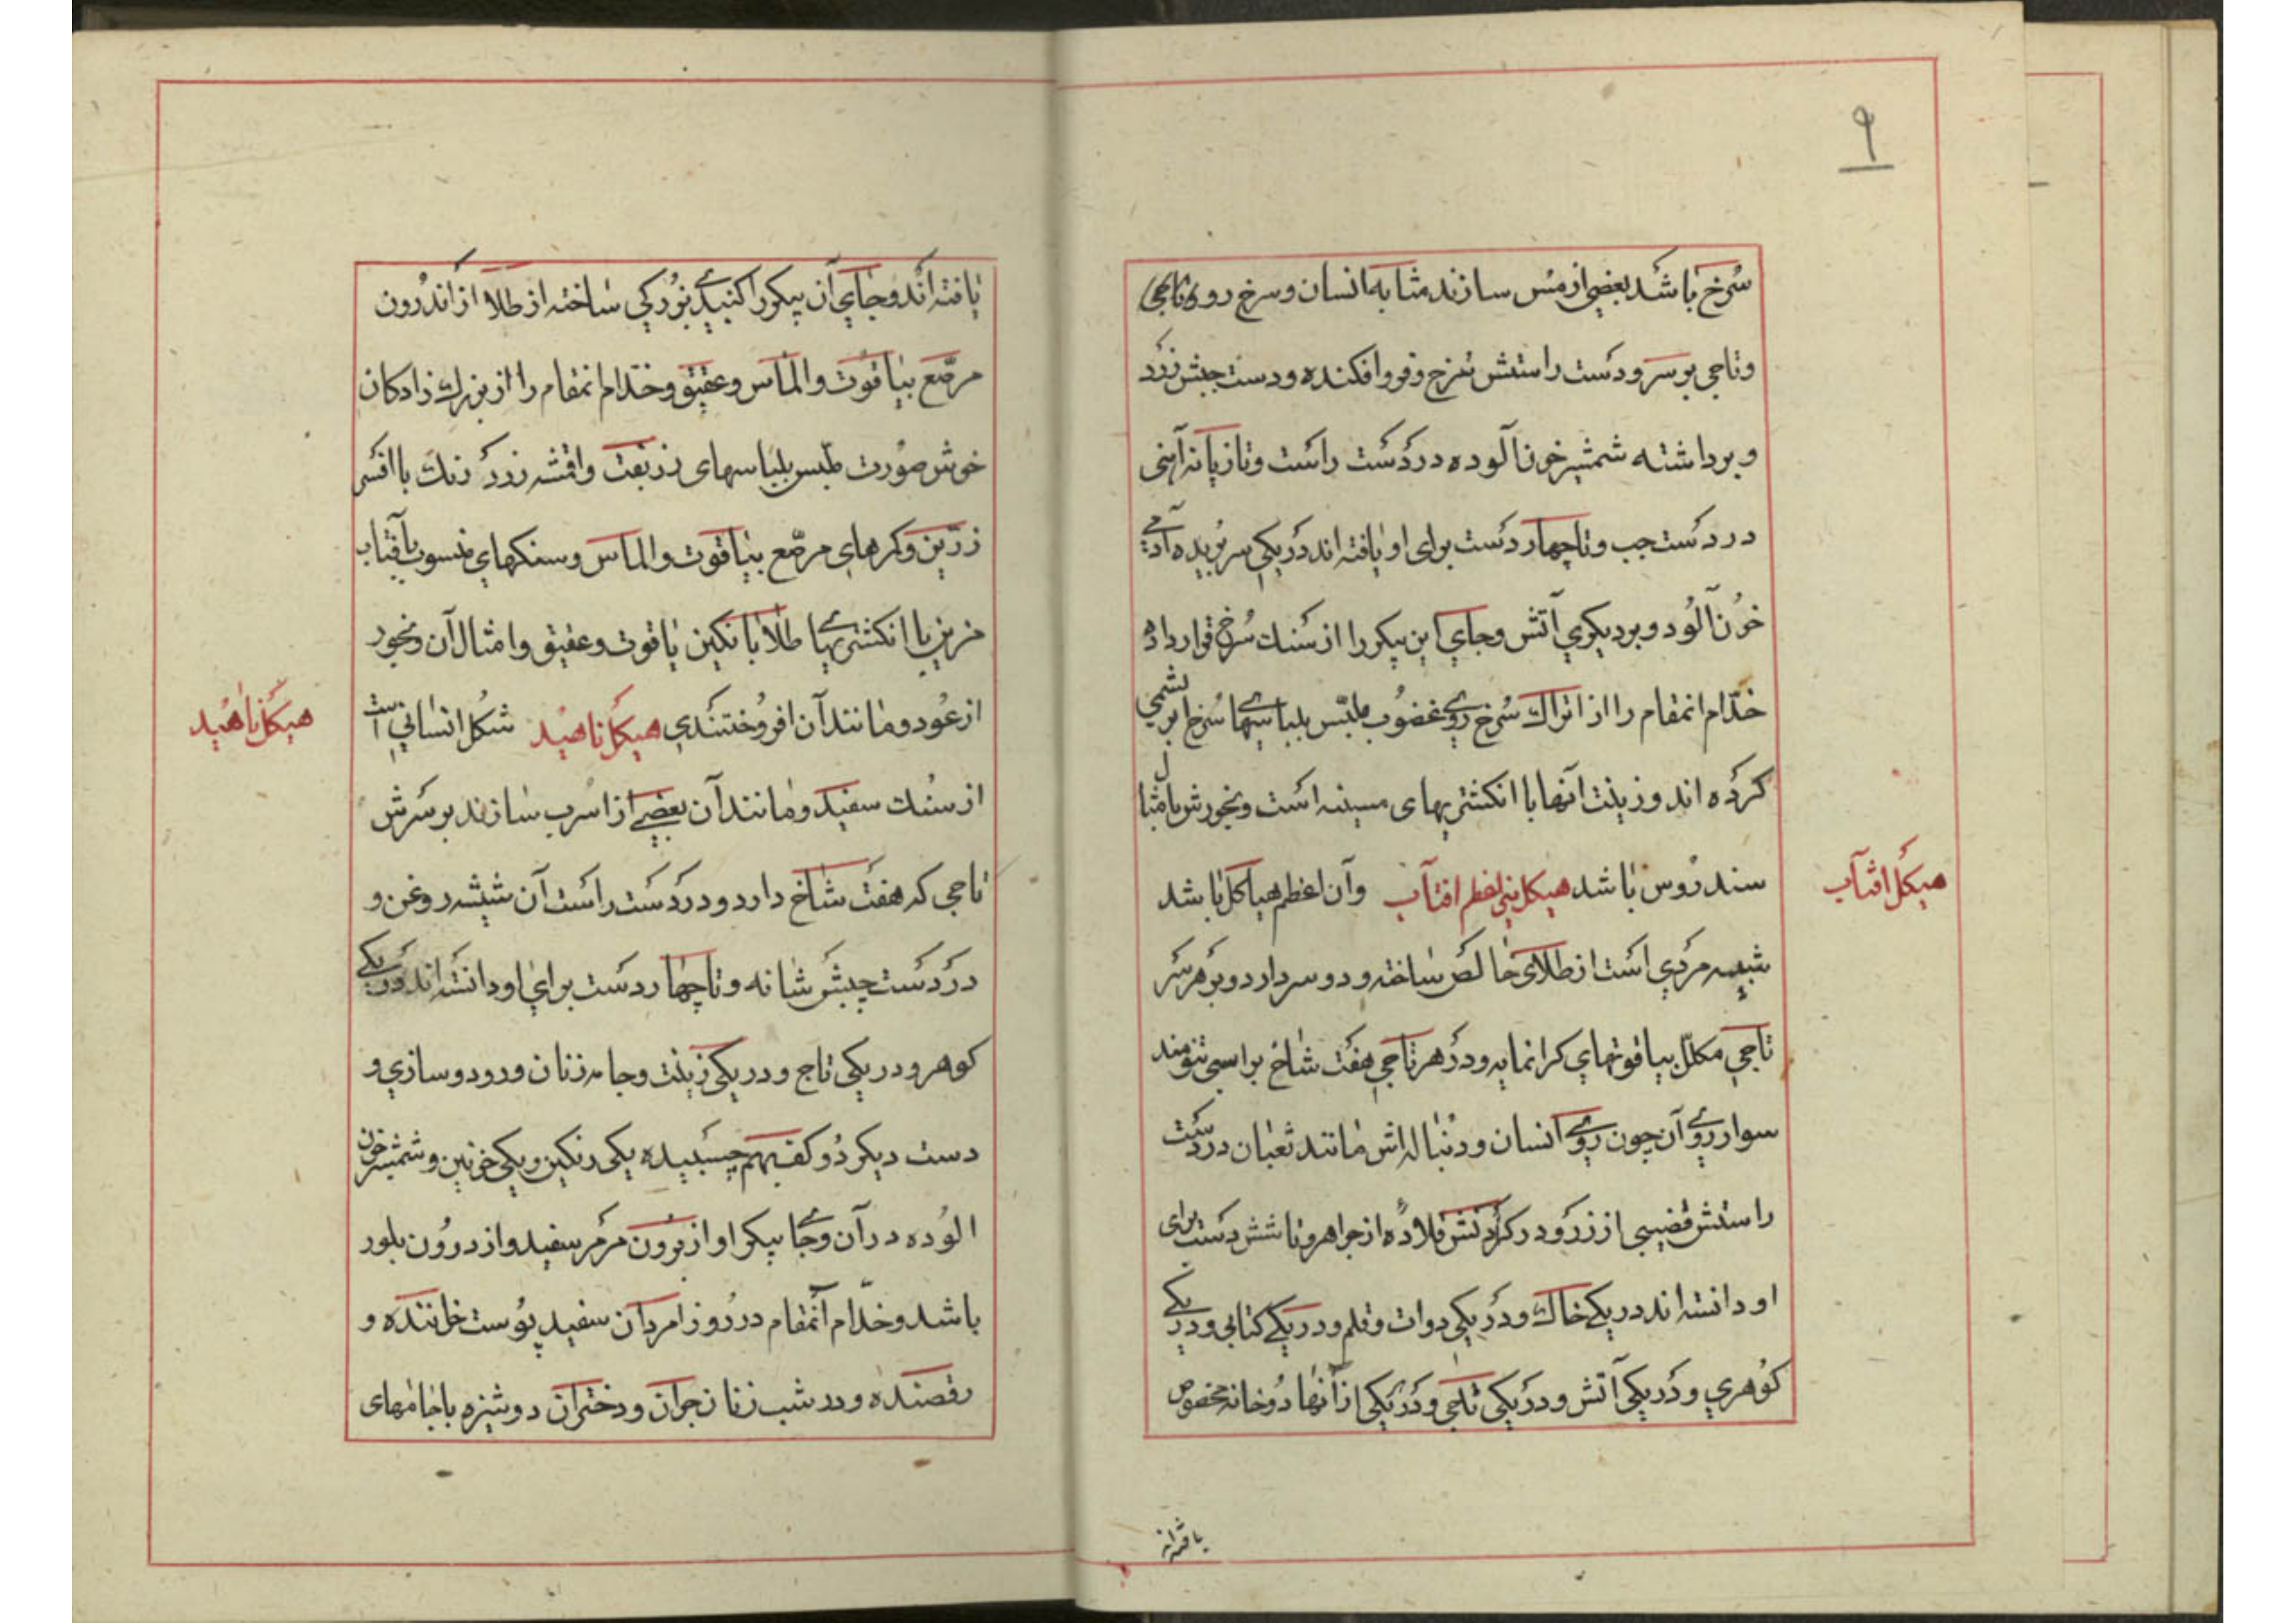 ۹
سرخ باشد بعضی از مس سازند مشابه انسان و سرخ روی
و تاجی بر سر و دست راستش سرخ و فرو افکنده و دست چپش زرد
و برداشته شمشیر خون آلوده در دست راست و تازیانه آهنی
در دست چپ و تا چهار دست برای او یافته اند در یکی سر بریده آدمی
خون آلود و بر دیگری آتش و جای این پیکر را از سنك سرخ قرار داده
خدّام انمقام را از اتراك سرخ روی غضوب ملبّس بلباسهای سرخ ابریشمی
کرده اند و زینت آنها با انکشتریهای مسینه است و بخورش بامثال
سندروس باشد هیکل نیر اعظم افتاب وآن اعظم هیاکل باشد
هیکل افتاب
شبیه مردی است از طلای خالص ساخته و دو سر دارد و بر هر سر
تاجی مکلّل بیاقوتهای کرانمایه و در هر تاجی هفت شاخ بر اسبی تنومند
سوار روی آن چون روی انسان و دنباله اش مانند ثعبان در دست
راستش قضیبی از زر و در کردنش قلاده از جواهر و تا شش دست برای
او دانسته اند در یکی خاك و در یکی دوات و قلم و در یکی کتابی و در یکی
کوهری و در یکی آتش و در یکی تاجی و در یکی از آنها دو خانه مخصوص
یافته اند
یافته اند و جای آن پیکر را کنبدی بزرکی ساخته از طلا از اندرون
مرصّع بیاقوت و الماس و عقیق و خدّام انمقام را از بزرك زادکان
خوش صورت ملبس بلباسهای زربفت و اقمشه زرد رنك با افسر
زرّین و کمرهای مرصّع بیاقوت و الماس و سنکهای منسوب بآفتاب
مزین با انکشتریهای طلا با نکین یاقوت و عقیق و امثال آن و بخور
از عود و مانند آن افروختندی هیکل ناهید شکل انسانی است
هیکل ناهید
از سنك سفید و مانند آن بعضی از اسرب سازند بر سرش
تاجی که هفت شاخ دارد و در دست راست آن شیشه روغن و
در دست چپش شانه و تا چهار دست برای او دانسته اند در یکی
کوهر و در یکی تاج و در یکی زینت و جامه زنان و رود و سازی و
دست دیکر دو کف بهم چسبیده یکی رنکین و یکی خونین و شمشیر خون
الوده در آن و جای پیکر او از برون مرمر سفید و از درون بلور
باشد و خدّام آنمقام در روز امردان سفید پوست خواننده و
رقصنده و در شب زنان جوان و دختران دوشیزه با جامهای